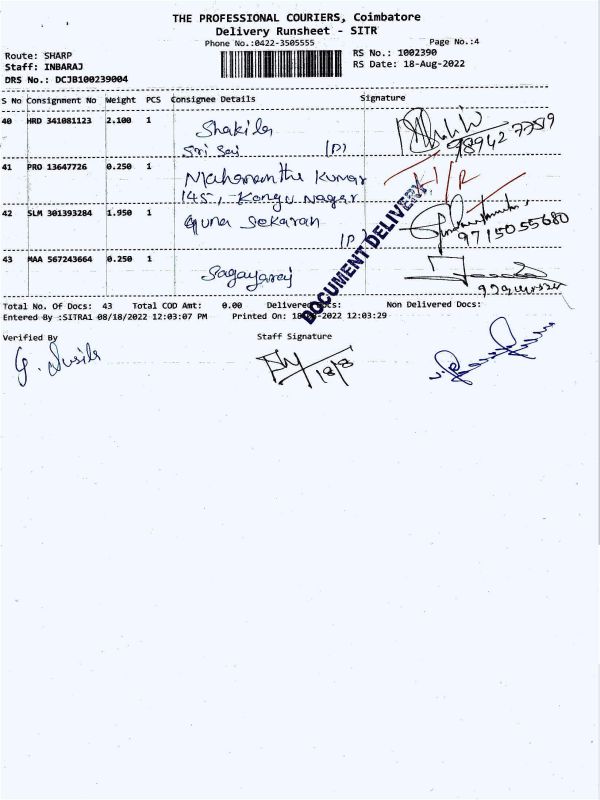 THE PROFESSIONAL COURIERS, Coimbatore
Delivery Runsheet - SITR
Phone No.:0422-3505555
Page No.:4
Route: SHARP
RS No.: 1002390
Staff: INBARAJ
RS Date: 18-Aug-2022
DRS No.: DCJB100239004
S No Consignment No Weight PCS Consignee Details Signature
40 HRD 341081123 2.100 1 Shakila
Sri Sai (P)
98942 77519
41 PRO 13647726 0.250 1 Mahamantha Kumar
145, Kongu Nagar
42 SLM 301393284 1.950 1 Guna Sekaran
(P)
9715055680
43 MAA 567243664 0.250 1 Sagayaraj
DOCUMENT DELIVERY
Total No. Of Docs: 43 Total COD Amt: 0.00 Delivered Docs: Non Delivered Docs:
Entered By :SITRA1 08/18/2022 12:03:07 PM Printed On: 18-08-2022 12:03:29
Verified By Staff Signature
G. Susila
18/8